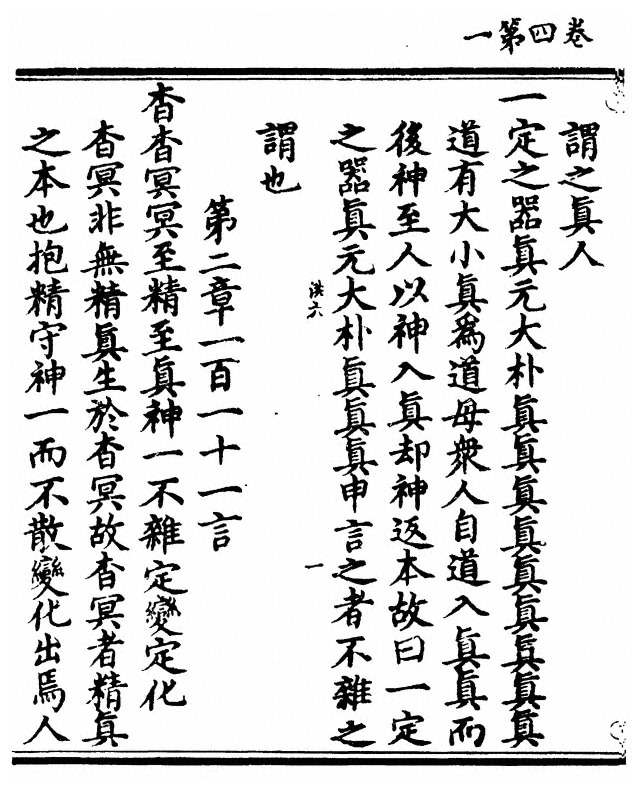 卷四第一
謂之眞人
一定之器眞元大朴眞眞眞眞眞眞眞眞眞
道有大小眞爲道母衆人自道入眞眞而
後神至人以神入眞却神返本故曰一定
之器眞元大朴眞眞眞申言之者不雜之
洪六　一
謂也
第二章一百一十一言
杳杳冥冥至精至眞神一不雜定變定化
杳冥非無精眞生於杳冥故杳冥者精眞
之本也抱精守神一而不散變化出焉人